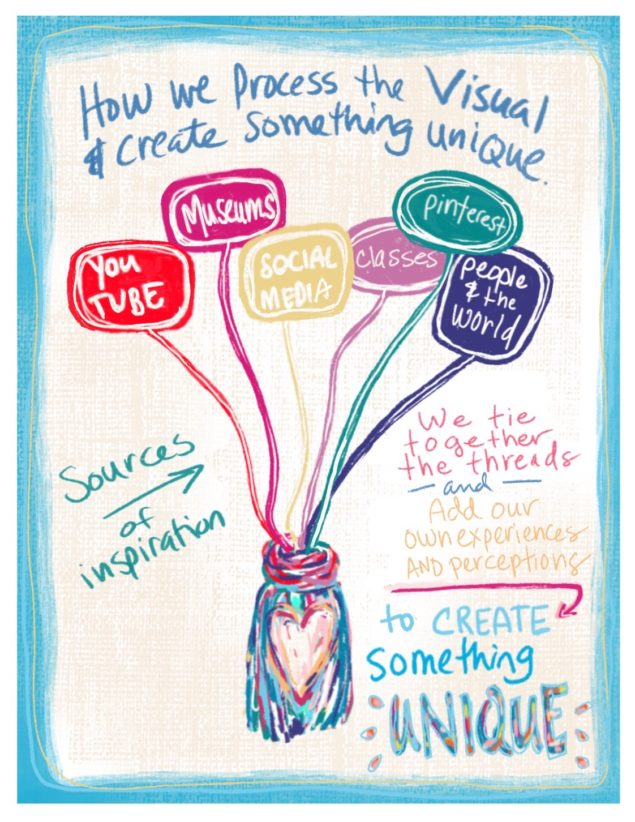 How we Process the Visual
& Create Something Unique.
Museums
Pinterest
YOU
TUBE
SOCIAL
MEDIA
classes
People
& the
World
Sources
of
inspiration
We tie
together
the threads
- and -
Add our
own experiences
AND perceptions
to CREATE
Something
UNIQUE